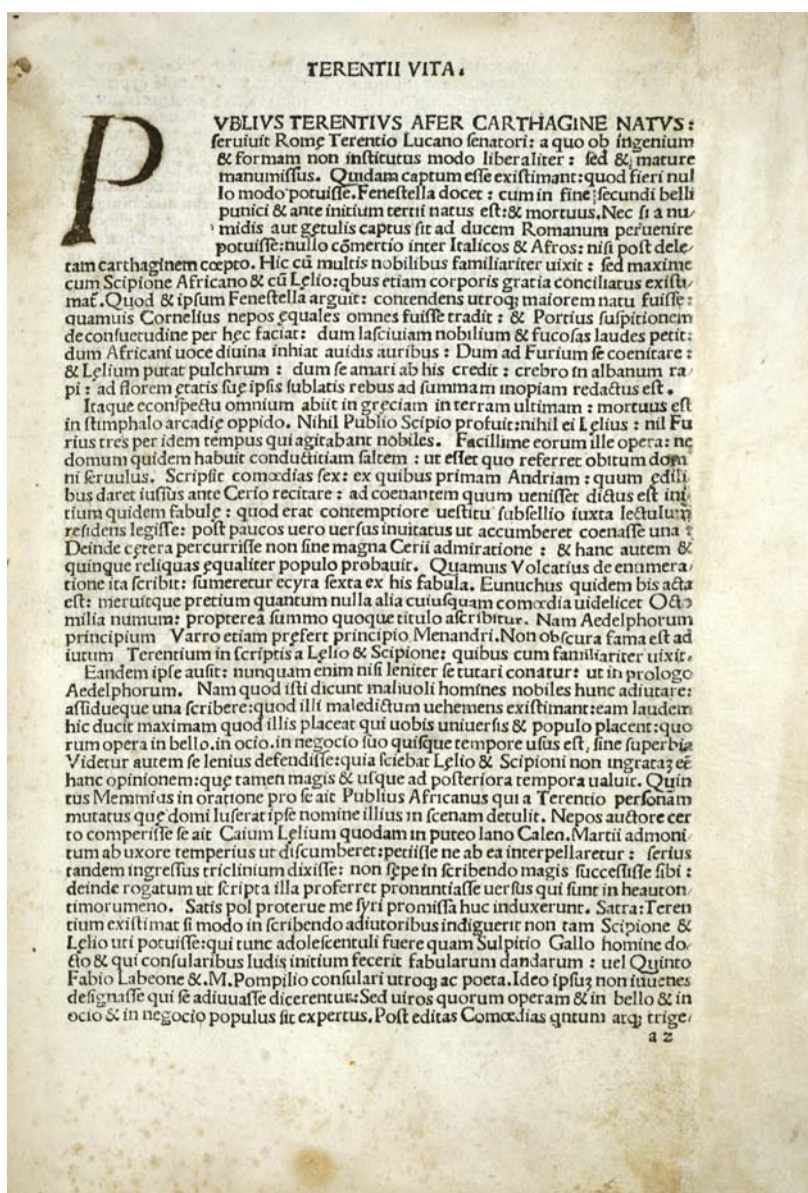 TERENTII VITA.
PVBLIVS TERENTIVS AFER CARTHAGINE NATVS:
ſeruiuit Romę Terentio Lucano ſenatori: a quo ob ingenium
& formam non inſtitutus modo liberaliter: ſed & mature
manumiſſus. Quidam captum eſſe exiſtimant: quod fieri nul
lo modo potuiſſe. Feneſtella docet: cum in fine ſecundi belli
punici & ante initium tertii natus eſt: & mortuus. Nec ſi a nu/
midis aut getulis captus ſit ad ducem Romanum peruenire
potuiſſe: nullo cōmertio inter Italicos & Afros: niſi poſt dele/
tam carthaginem cœpto. Hic cū multis nobilibus familiariter uixit: ſed maxime
cum Scipione Africano & cū Lęlio: qbus etiam corporis gratia conciliatus exiſtı/
mať. Quod & ipſum Feneſtella arguit: contendens utroq; maiorem natu fuiſſe:
quamuis Cornelius nepos ęquales omnes fuiſſe tradit: & Portius ſuſpitionem
de conſuetudine per hęc faciat: dum laſciuiam nobilium & fucoſas laudes petit:
dum Africani uoce diuina inhiat auidis auribus: Dum ad Furium ſe coenitare:
& Lęlium putat pulchrum: dum ſe amari ab his credit: crebro in albanum ra/
pi: ad florem ętatis ſuę ipſis ſublatis rebus ad ſummam inopiam redactus eſt.
Itaque econſpectu omnium abiit in gręciam in terram ultimam: mortuus eſt
in ſtimphalo arcadię oppido. Nihil Publio Scipio profuit: nihil ei Lęlius: nil Fu
rius tres per idem tempus qui agitabant nobiles. Facillime eorum ille opera: ne
domum quidem habuit conductitiam ſaltem: ut eſſet quo referret obitum domi
ni ſeruulus. Scripſit comœdias ſex: ex quibus primam Andriam: quum ędili
bus daret iuſſus ante Cerio recitare: ad coenantem quum ueniſſet dictus eſt ini
tium quidem fabulę: quod erat contemptiore ueſtitu ſubſellio iuxta lectulum
reſidens legiſſe: poſt paucos uero uerſus inuitatus ut accumberet coenaſſe una:
Deinde cętera percurriſſe non ſine magna Cerii admiratione: & hanc autem &
quinque reliquas ęqualiter populo probauit. Quamuis Volcatius de enumera/
tione ita ſcribit: ſumeretur ecyra ſexta ex his fabula. Eunuchus quidem bis acta
eſt: meruitque pretium quantum nulla alia cuiuſquam comœdia uidelicet Octo
milia numum: propterea ſummo quoque titulo aſcribitur. Nam Aedelphorum
principium Varro etiam pręfert principio Menandri. Non obſcura fama eſt ad
iutum Terentium in ſcriptis a Lęlio & Scipione: quibus cum familiariter uixit.
Eandem ipſe auſit: nunquam enim niſi leniter ſe tutari conatur: ut in prologo
Aedelphorum. Nam quod iſti dicunt maliuoli homines nobiles hunc adiutare:
aſſidueque una ſcribere: quod illi maledictum uehemens exiſtimant: eam laudem
hic ducit maximam quod illis placeat qui uobis uniuerſis & populo placent: quo
rum opera in bello. in ocio. in negocio ſuo quiſque tempore uſus eſt, ſine ſuperbia
Videtur autem ſe lenius defendiſſe: quia ſciebat Lęlio & Scipioni non ingrataȝ eē
hanc opinionem: quę tamen magis & uſque ad poſteriora tempora ualuit. Quin
tus Memmius in oratione pro ſe ait Publius Africanus qui a Terentio perſonam
mutatus quę domi luſerat ipſe nomine illius in ſcenam detulit. Nepos auctore cer
to comperiſſe ſe ait Caium Lęlium quodam in puteolano Calen. Martii admoni
tum ab uxore temperius ut diſcumberet: petiiſſe ne ab ea interpellaretur: ſerius
tandem ingreſſus triclinium dixiſſe: non ſępe in ſcribendo magis ſucceſſiſſe ſibi:
deinde rogatum ut ſcripta illa proferret pronuntiaſſe uerſus qui ſunt in heauton/
timorumeno. Satis pol proterue me ſyri promiſſa huc induxerunt. Satra: Teren
tium exiſtimat ſi modo in ſcribendo adiutoribus indiguerit non tam Scipione &
Lęlio uti potuiſſe: qui tunc adoleſcentuli fuere quam Sulpitio Gallo homine do/
cto & qui conſularibus ludis initium fecerit fabularum dandarum: uel Quinto
Fabio Labeone &. M. Pompilio conſulari utroq; ac poeta. Ideo ipſuȝ non iuuenes
deſignaſſe qui ſe adiuuaſſe dicerentur: Sed uiros quorum operam & in bello & in
ocio & in negocio populus ſit expertus. Poſt editas Comœdias qntum atq; trige/
a 2